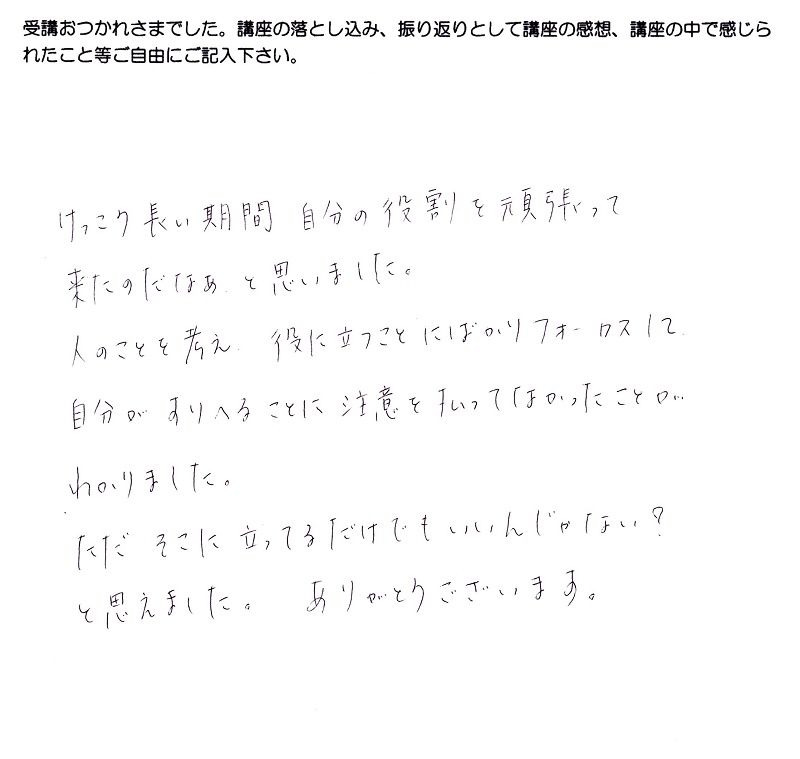 受講おつかれさまでした。講座の落とし込み、振り返りとして講座の感想、講座の中で感じら
れたこと等ご自由にご記入下さい。
けっこう長い期間 自分の役割を頑張って
来たのだなぁ、と思いました。
人のことを考え、役に立つことにばかりフォーカスして
自分がすりへることに注意を払ってなかったことが
わかりました。
ただ そこに立ってるだけでもいいんじゃない?
と思えました。 ありがとうございます。